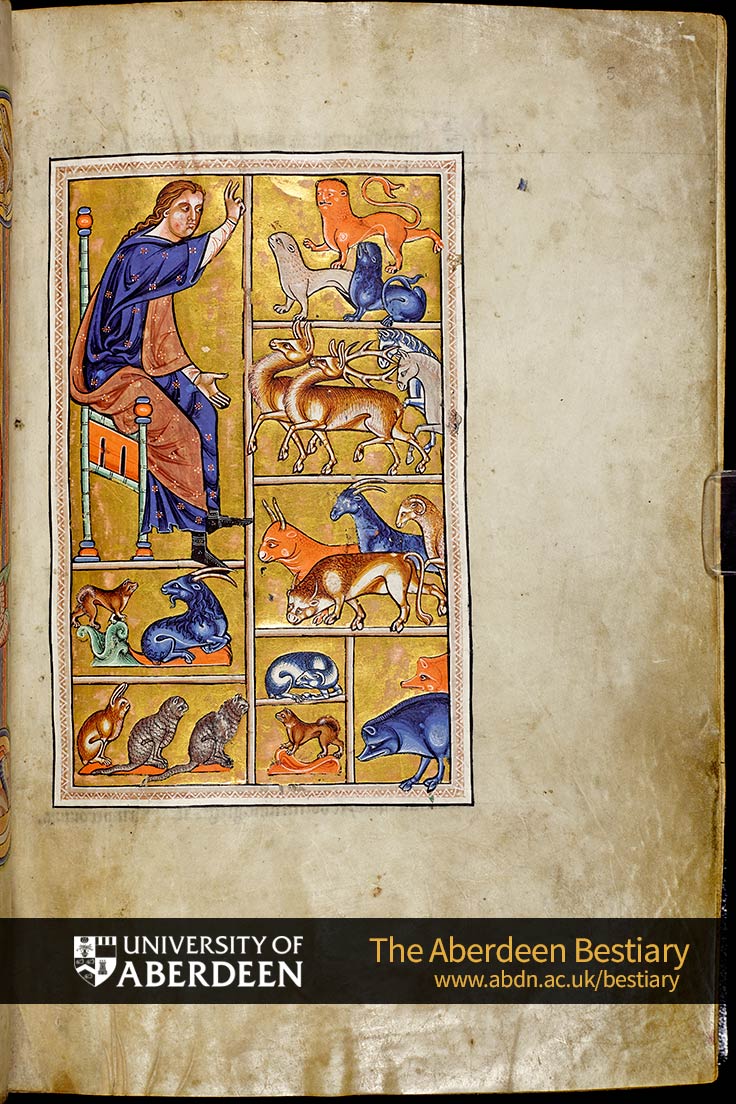 5
UNIVERSITY OF
ABERDEEN
The Aberdeen Bestiary
www.abdn.ac.uk/bestiary